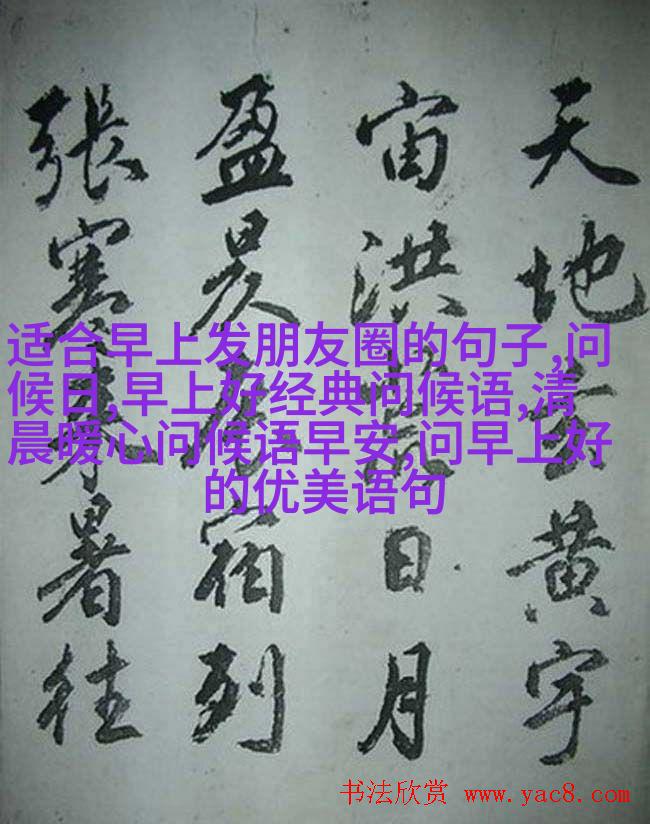 天地玄黄宇
宙洪荒日月
盈昃辰宿列
張寒来暑往
适合早上发朋友圈的句子,问
候日,早上好经典问候语,清
晨暖心问候语早安,问早上好
的优美语句
书法欣赏 www.yac8.com